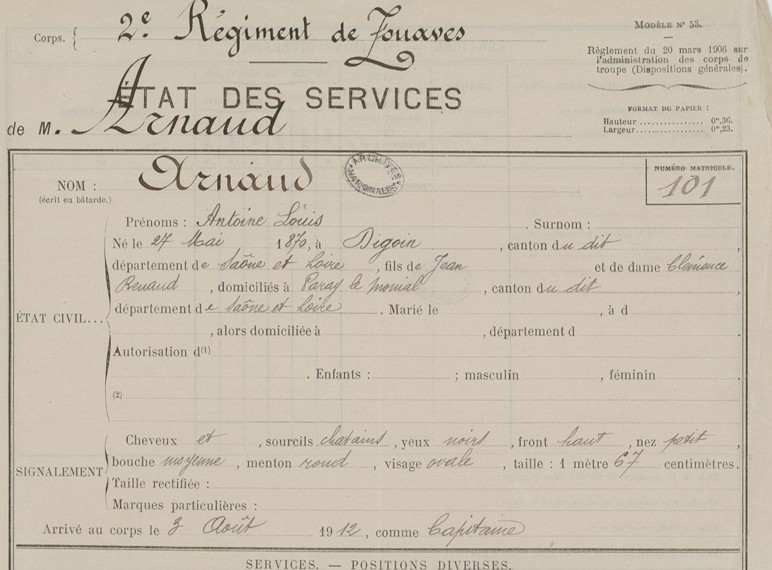 Corps. { 2e Régiment de Zouaves
MODÈLE N° 53.
Règlement du 20 mars 1906 sur
l'administration des corps de
troupe (Dispositions générales).
ÉTAT DES SERVICES
de M. Arnaud
FORMAT DU PAPIER :
Hauteur ................ 0m,36.
Largeur ................ 0m,23.
NOM : Arnaud
(écrit en bâtarde.)
ARCHIVES NATIONALES
NUMÉRO MATRICULE.
101
ÉTAT CIVIL...
Prénoms : Antoine Louis . Surnom :
Né le 27 Mai 1870, à Digoin , canton du dit ,
département de Saône et Loire , fils de Jean et de dame Clémence
Renaud , domiciliés à Paray le Monial , canton du dit ,
département de Saône et Loire . Marié le , à d
, alors domiciliée à , département d
Autorisation d(1)
. Enfants : ; masculin , féminin
(2)
SIGNALEMENT
Cheveux et , sourcils chatains , yeux noirs , front haut , nez petit ,
bouche moyenne , menton rond , visage ovale , taille : 1 mètre 67 centimètres.
Taille rectifiée :
Marques particulières :
Arrivé au corps le 3 Août 1912, comme Capitaine
SERVICES. — POSITIONS DIVERSES.